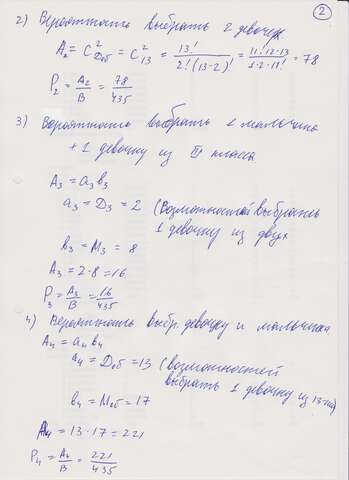 2
2) Вероятность выбрать 2 девочек
A₂ = C²_Dоб = C²₁₃ = 13! / 2!(13-2)! = 11!·12·13 / 1·2·11! = 78
P₂ = A₂/B = 78/435
3) Вероятность выбрать 1 мальчика
+ 1 девочку из III класса
A₃ = a₃ b₃
a₃ = D₃ = 2 (Возможностей выбрать
1 девочку из двух
b₃ = M₃ = 8
A₃ = 2·8 = 16
P₃ = A₃/B = 16/435
4) Вероятность выбр. девочку и мальчика
A₄ = a₄ b₄
a₄ = Dоб = 13 (возможностей
выбрать 1 девочку из 13-ти)
b₄ = Mоб = 17
A₄ = 13·17 = 221
P₄ = A₄/B = 221/435